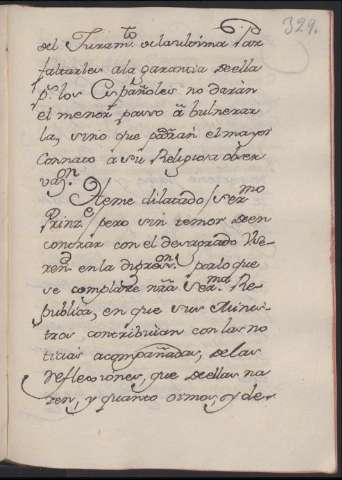 329.
del Juram.to dela ultima Par
faltarles a la garantia de ella
p.r los Españoles no darán
el menor passo â bulnerar
la, sino que pondrán el mayor
Connato â su Religiosa obser
va.on
Heme dilatado /Ser.mo
Prinz.e/ pero sin temor de en
contrar con el desagrado Vue
ren.a en la digres.on por lo que
se complace nrâ Ser.ma Re
publica, en que sus Minis
tros contribuian con las no
ticias acompañadas, de las
reflecciones, que de ellas na
zen, y quanto somos, o y de